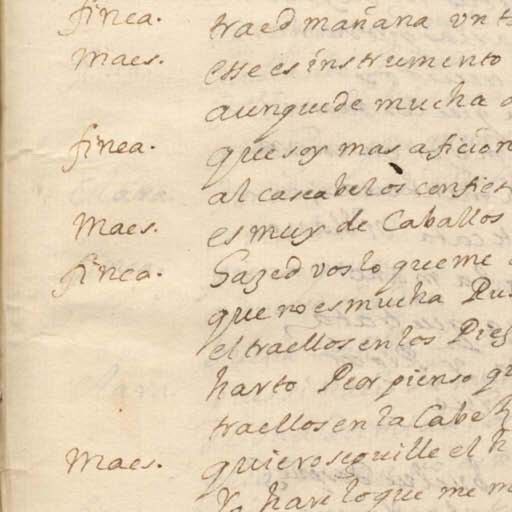 finea. traed mañana vn t
Maes. esse es instrumento
aunque de mucha a
finea. que soy mas aficion
al cascabel os confies
Maes. es muy de Caballos
finea. Hazed vos lo que me
que no es mucha Pu
el traellos en los Pies
harto Peor pienso qu
traellos en la Cabe
Maes. quiero seguille el h
Yo hare lo que me m